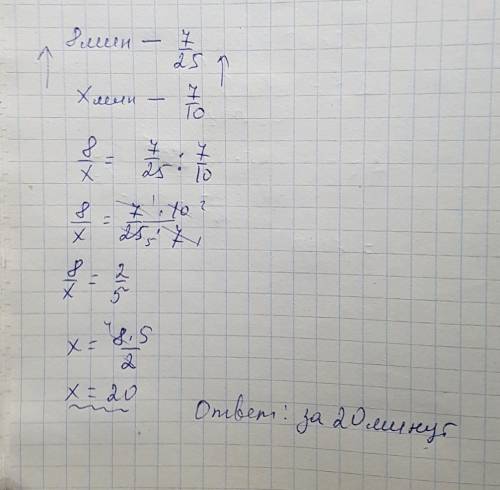 8 мин — 7/25
X мин — 7/10
8/X = 7/25 : 7/10
8/X = 7 ¹ · 10 ² / 25 ₅ · 7 ₁
8/X = 2/5
X = ⁴8 · 5/2
X = 20
Ответ: за 20 минут